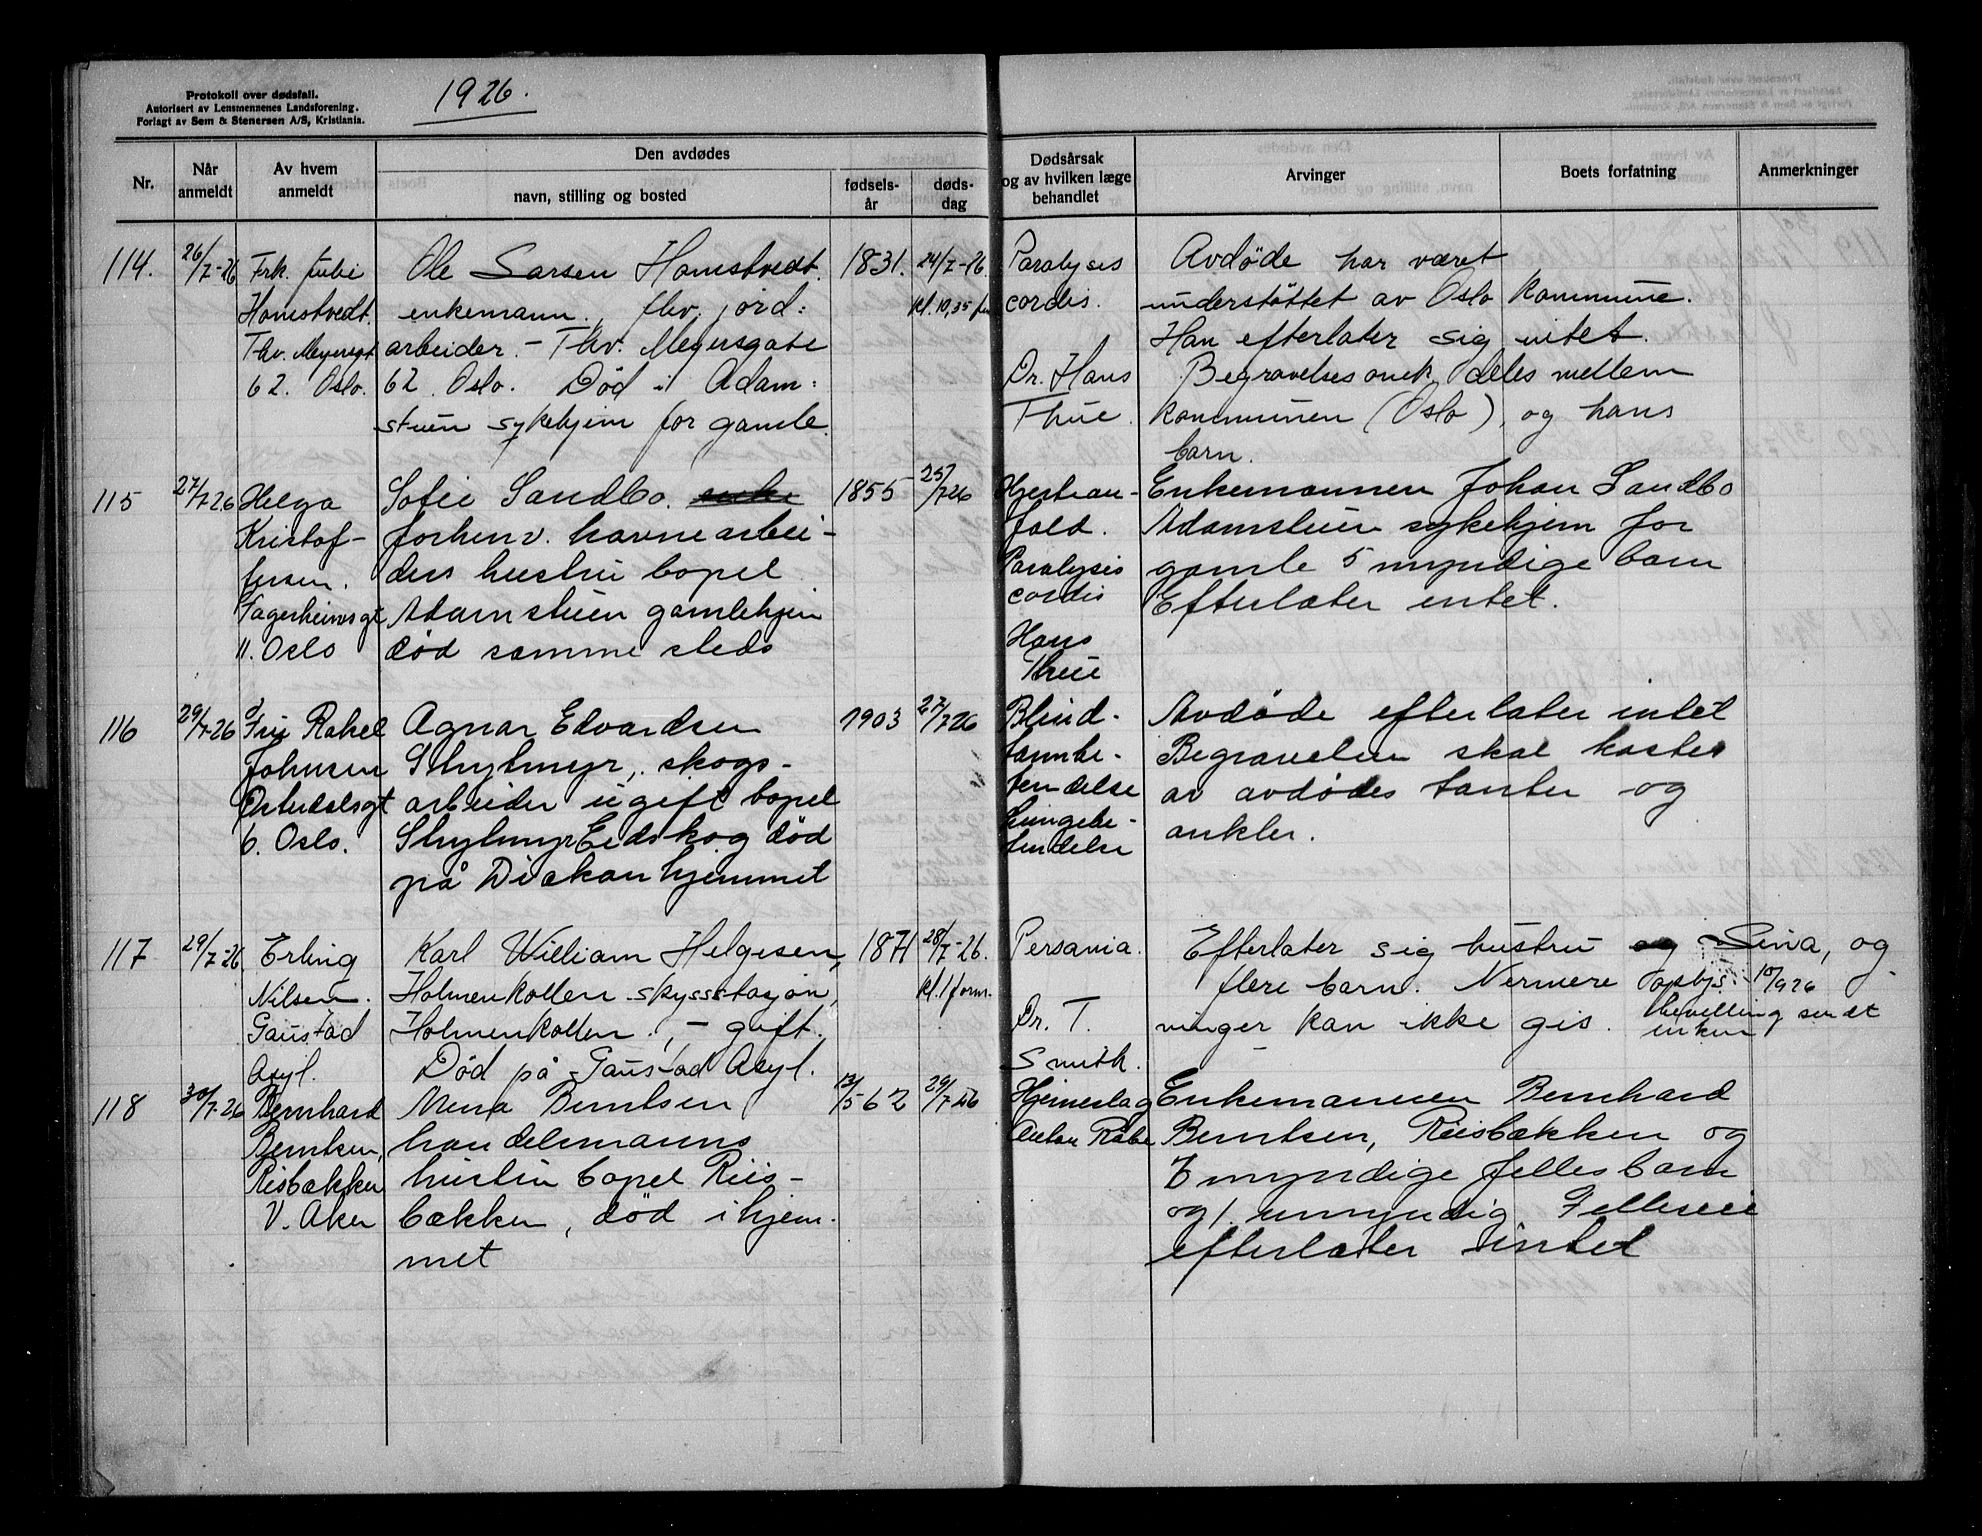 Protokoll over dødsfall.
Autorisert av Lensmennenes Landsforening.
Forlagt av Sem & Stenersen A/S, Kristiania.
1926.
Nr.
Når anmeldt
Av hvem anmeldt
Den avdødes
navn, stilling og bosted
fødsels-år
døds-dag
Dødsårsak og av hvilken læge behandlet
Arvinger
Boets forfatning
Anmerkninger
114.
26/7-26
Frk. Julie
Homstvedt.
Thv. Meyersgt
62. Oslo.
Ole Larsen Homstvedt.
enkemann, fhv. jord:
arbeider. - Thv. Meyersgate
62. Oslo. Død i Adam:
stuen sykehjem for gamle.
1831.
24/7-26.
kl. 10,35 fm
Paralysis
cordis.
Dr. Hans
Thue.
Avdøde har været
understøttet av Oslo kommune.
Han efterlater sig intet.
Begravelsesomk. deles mellem
kommunen (Oslo), og hans
barn.
115
27/7.26
Helga
Kristof-
fersen.
Fagerheimsgt
11. Oslo
Sofie Sandbo.
forhenv. havnearbei-
ders hustru bopel
Adamstuen gamlehjem
død samme steds
1855
25/7 26
Hjertean-
fald.
Paralysis
cordis
Hans
Thue
Enkemannen Johan Sandbo
Adamstuen sykehjem for
gamle 5 myndige barn
Efterlater intet.
116
29/7-26
Fru Rakel
Johnsen
Østerdalsgt
6. Oslo.
Agnar Edvardsen
skogs-
arbeider ugift bopel
Eidskog død
på Diakonhjemmet
1903
27/7 26
Blind-
tarmbe-
tendelse
Lungebe-
tendelse
Avdøde efterlater intet
Begravelsen skal kostes
av avdødes tanter og
onkler.
117
29/7-26
Erling
Nilsen.
Gaustad
Asyl.
Karl William Helgesen,
Holmenkollen skysstasjon,
Holmenkollen, - gift.
Død på Gaustad Asyl.
1871
28/7-26.
kl. 1 form.
Dr. T.
Smith.
Efterlater sig hustru Lina, og
flere barn. Nermere oplys-
ninger kan ikke gis.
10/9 26
Bevilling sendt
enken
118
30/7-26
Bernhard
Berntsen,
Risbækken
V. Aker
Mena Berntsen
handelsmanns
hustru bopel Riis-
bækken, død i hjem-
met
13/5 62
29/7-26
Hjerneslag
Anton Rabe
Enkemannen Bernhard
Berntsen, Riisbækken og
myndige felles barn
og 1 umyndig. Felleseie
efterlater intet